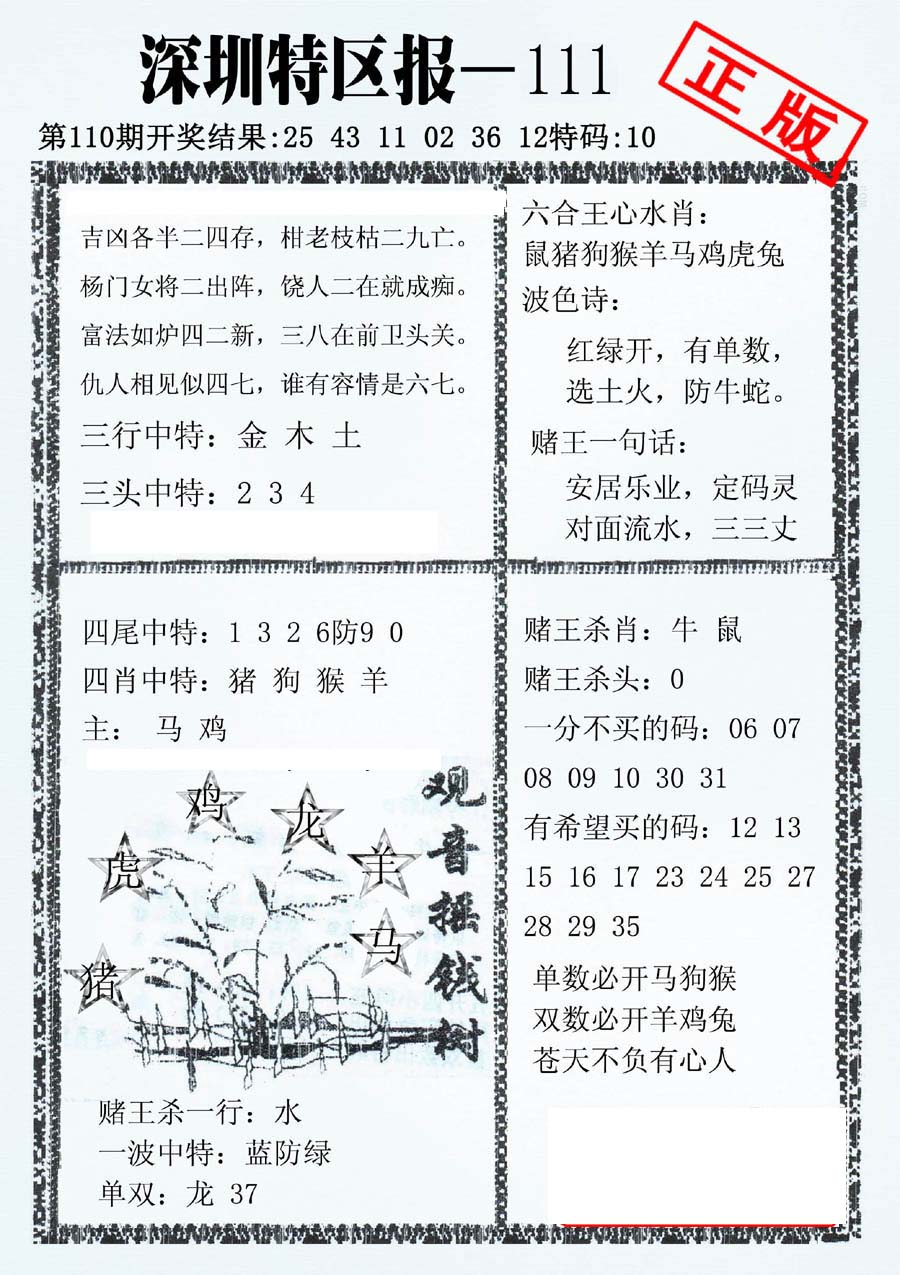 深圳特区报—111
正版
第110期开奖结果:25 43 11 02 36 12特码:10
吉凶各半二四存，柑老枝枯二九亡。
杨门女将二出阵，饶人二在就成痴。
富法如炉四二新，三八在前卫头关。
仇人相见似四七，谁有容情是六七。
三行中特：金 木 土
三头中特：2 3 4
六合王心水肖：
鼠猪狗猴羊马鸡虎兔
波色诗：
红绿开，有单数，
选土火，防牛蛇。
赌王一句话：
安居乐业，定码灵
对面流水，三三丈
四尾中特：1 3 2 6防9 0
四肖中特：猪 狗 猴 羊
主： 马 鸡
鸡
龙
虎
羊
马
猪
观音摇钱树
赌王杀一行：水
一波中特：蓝防绿
单双：龙 37
赌王杀肖：牛 鼠
赌王杀头：0
一分不买的码：06 07
08 09 10 30 31
有希望买的码：12 13
15 16 17 23 24 25 27
28 29 35
单数必开马狗猴
双数必开羊鸡兔
苍天不负有心人